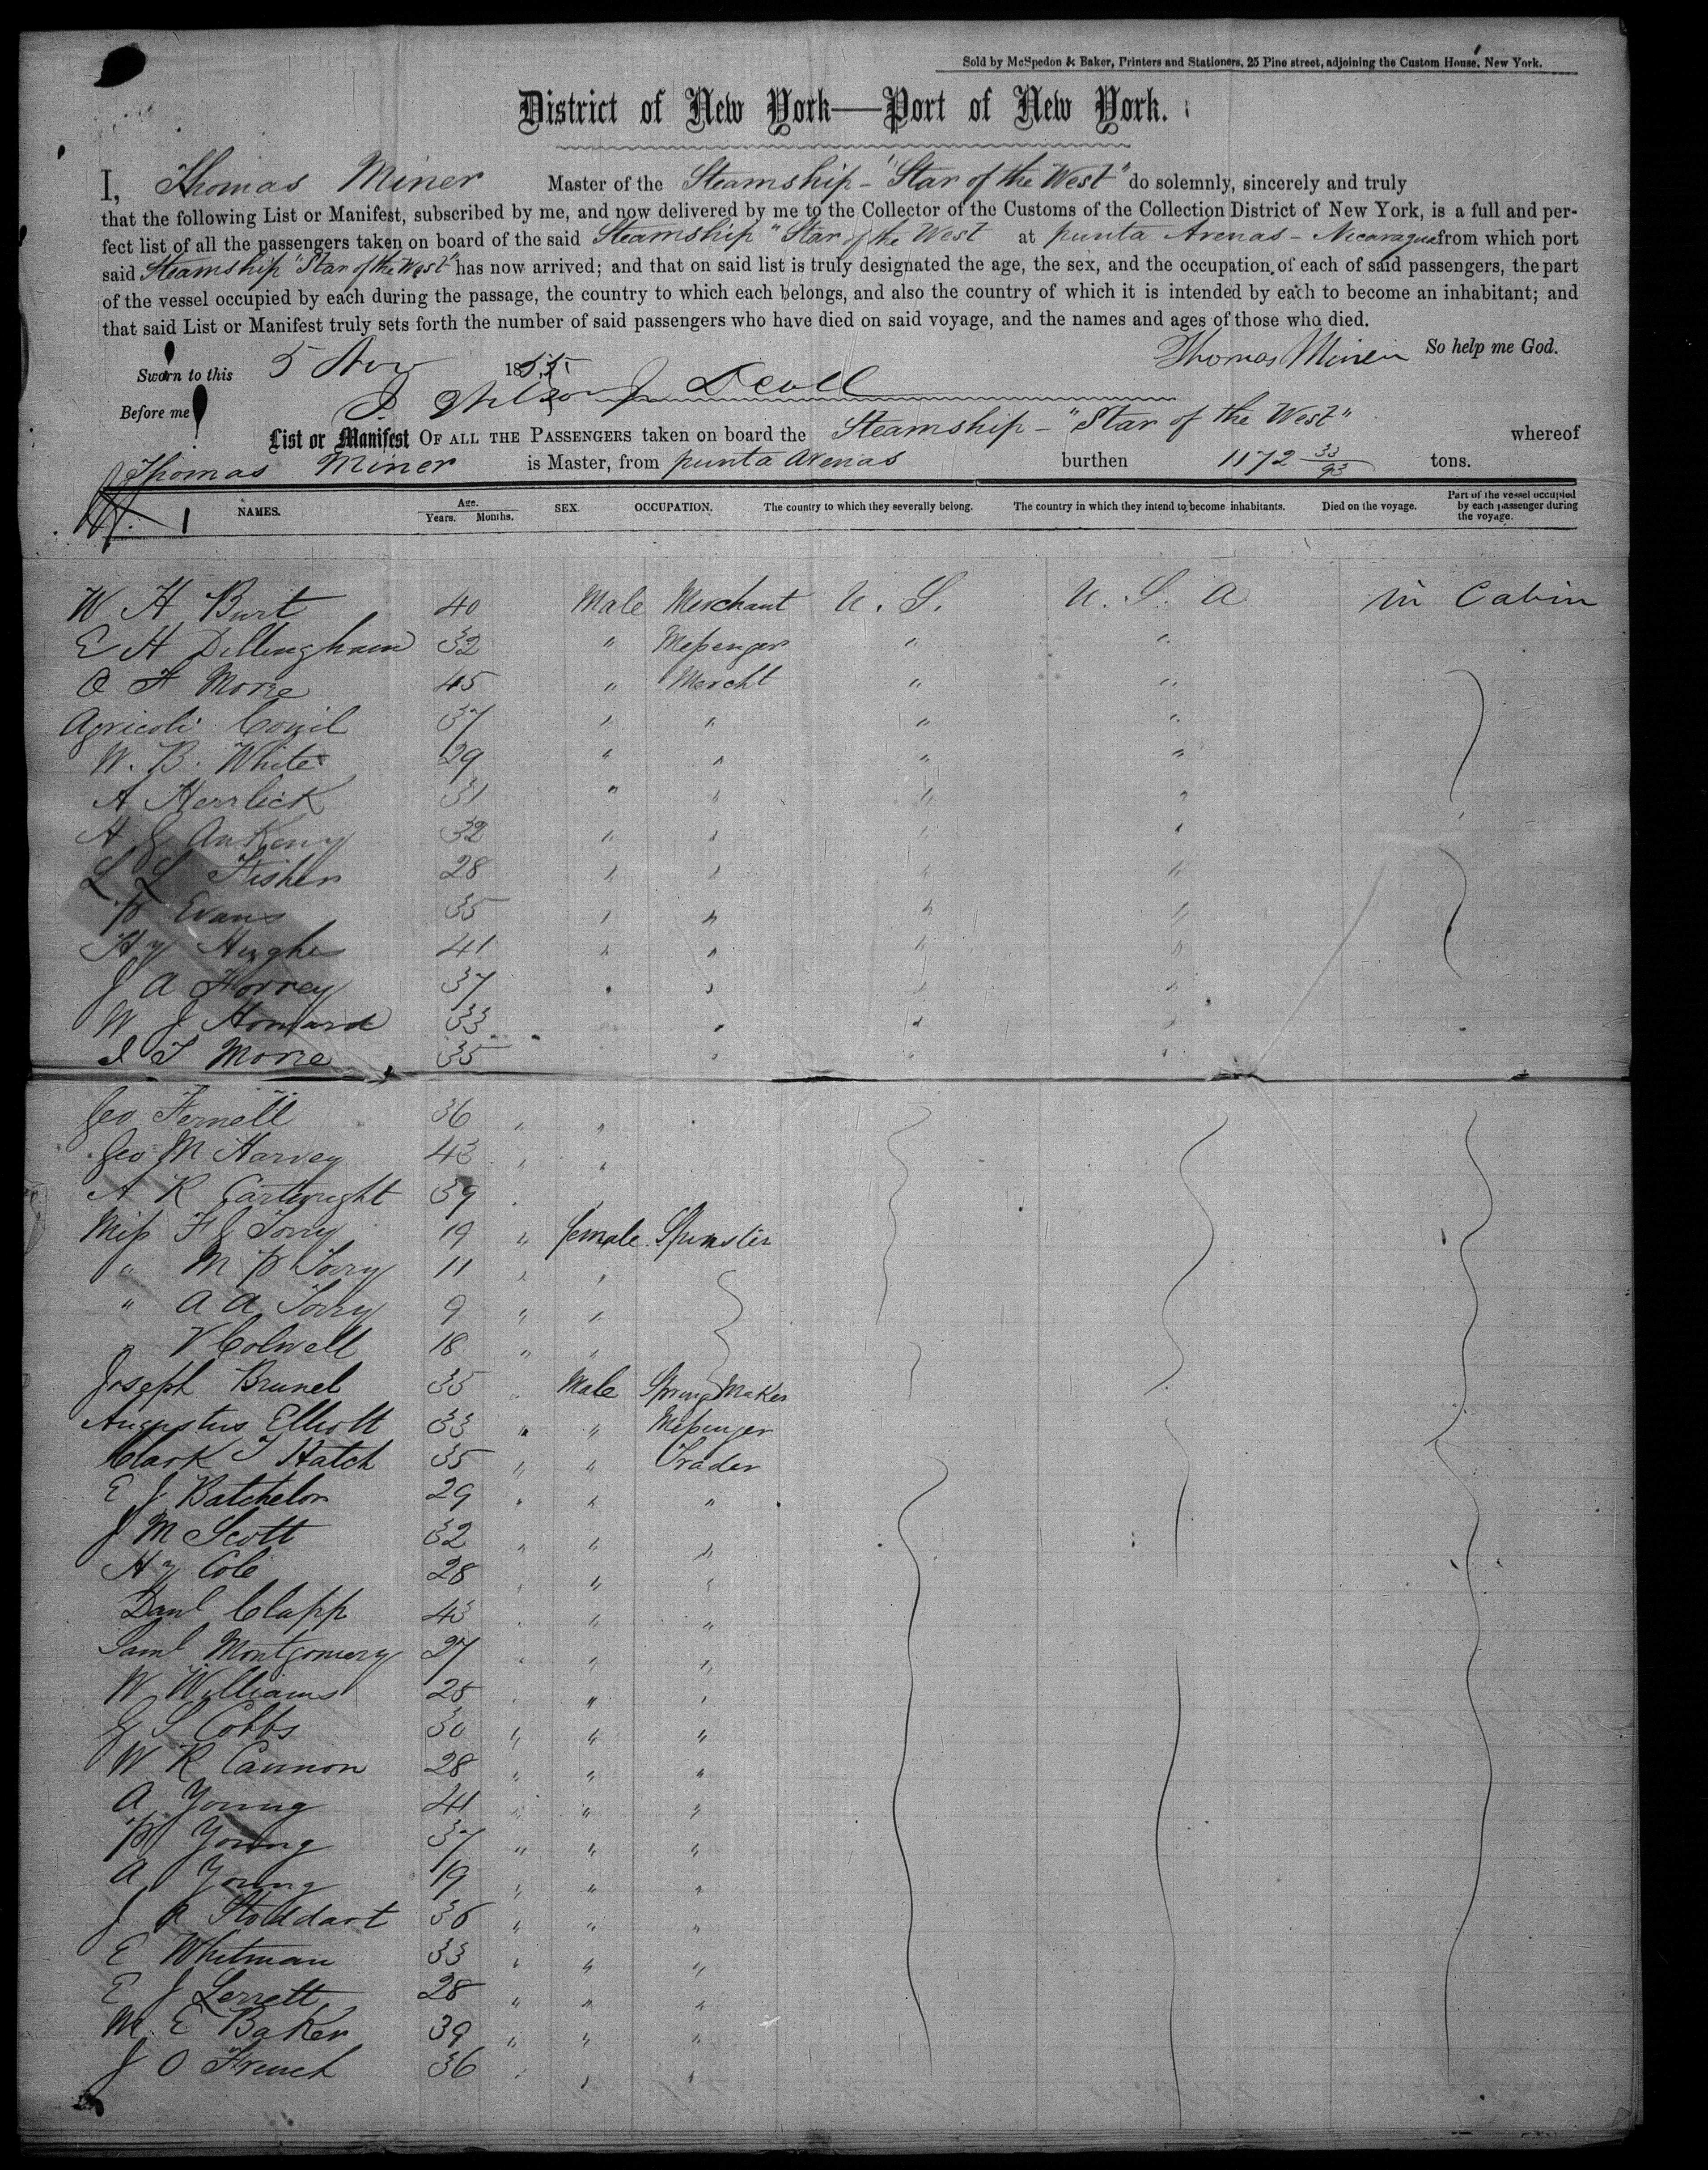 Sold by McSpedon & Baker, Printers and Stationers, 25 Pine street, adjoining the Custom House, New York.
District of New York—Port of New York.
I, Thomas Miner Master of the Steamship - "Star of the West" do solemnly, sincerely and truly
that the following List or Manifest, subscribed by me, and now delivered by me to the Collector of the Customs of the Collection District of New York, is a full and per-
fect list of all the passengers taken on board of the said Steamship "Star of the West at punta Arenas - Nicaragua from which port
said Steamship "Star of the West" has now arrived; and that on said list is truly designated the age, the sex, and the occupation of each of said passengers, the part
of the vessel occupied by each during the passage, the country to which each belongs, and also the country of which it is intended by each to become an inhabitant; and
that said List or Manifest truly sets forth the number of said passengers who have died on said voyage, and the names and ages of those who died.
Thomas Miner So help me God.
Sworn to this 5 Nov 1855
Before me
List or Manifest OF ALL THE PASSENGERS taken on board the Steamship - "Star of the West" whereof
Thomas Miner is Master, from punta Arenas burthen 1172 33/93 tons.
NAMES. Age. Years. Months. SEX. OCCUPATION. The country to which they severally belong. The country in which they intend to become inhabitants. Died on the voyage. Part of the vessel occupied by each passenger during the voyage.
1
W H Burt 40 Male Merchant U. S. U. S. A in Cabin
E H Dillingham 32 " Messenger " "
O F Morse 45 " Mercht " "
Agricoli 37 " " " "
W. B. White 29 " " " "
A Herrlick 31 " " " "
A J Ankeny 32 " " " "
L L Fisher 28 " " " "
P Evans 35 " " " "
Hy Hughes 41 " " " "
J A Forrey 37 " " " "
W J Howard 33 " " "
I T Morse 35 " " "
Geo Fernell 36 " "
Geo M Harvey 43 " "
A R Cartwright 39 " "
Miss F J Torry 19 " female Spinster
" M P Torry 11 " "
" A A Torry 9 " "
" V Colwell 18 " "
Joseph Brunel 35 " Male Spring Maker
Augustus Elliott 33 " " Messenger
Clark T Hatch 35 " " Trader
E J Batchelor 29 " " "
J M Scott 32 " " "
Hy Cole 28 " " "
Danl Clapp 43 " " "
Saml Montgomery 27 " " "
W Williams 28 " " "
G S Cobbs 30 " " "
W R Cannon 28 " " "
A Young 41 " " "
P Young 37 " " "
A Young 19 " " "
J R Stoddart 36 " " "
E Whitman 33 " " "
E J Lerrett 28 " " "
M. E Baker 39 " " "
J O French 36 " " "